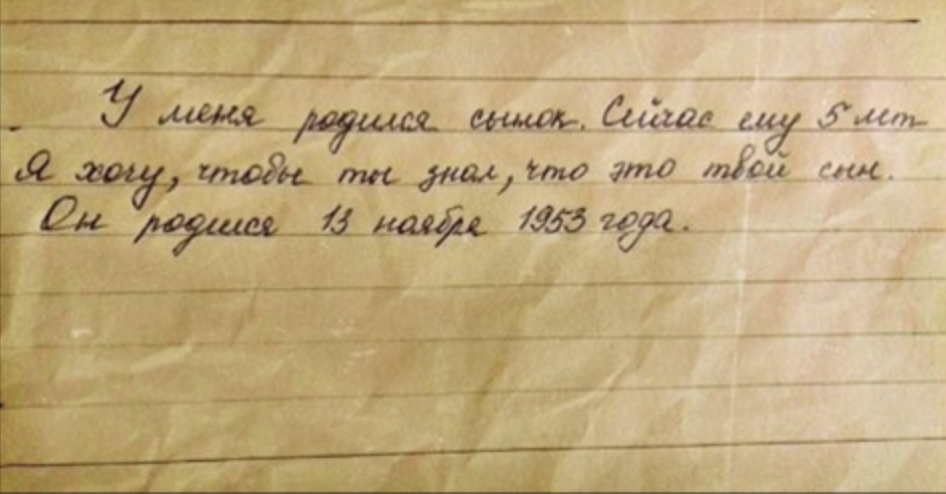 У меня родился сынок. Сейчас ему 5 лет
Я хочу, чтобы ты знал, что это твой сын.
Он родился 13 ноября 1953 года.